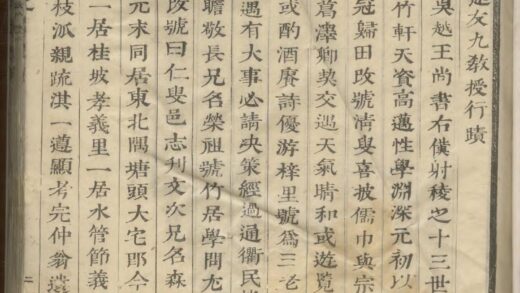 友九教授行蹟
吳越王尚書右僕射稜之十三世
竹軒天資高邁性學淵深元初以
冠歸田改號清叟喜披儒巾與宗
葛澤卿契交遇天氣晴和或遊覽
或酌酒賡詩優游梓里號爲三老
遇有大事必請决策經過通衢民
瞻敬長兄名榮祖號竹居學問尤
改號曰仁叟邑志刋文次兄名森
元末同居東北隅塘頭大宅郎今
一居桂坡孝義里一居水管節義
枝派親疏淇一遵顯考完仲翁遺
二